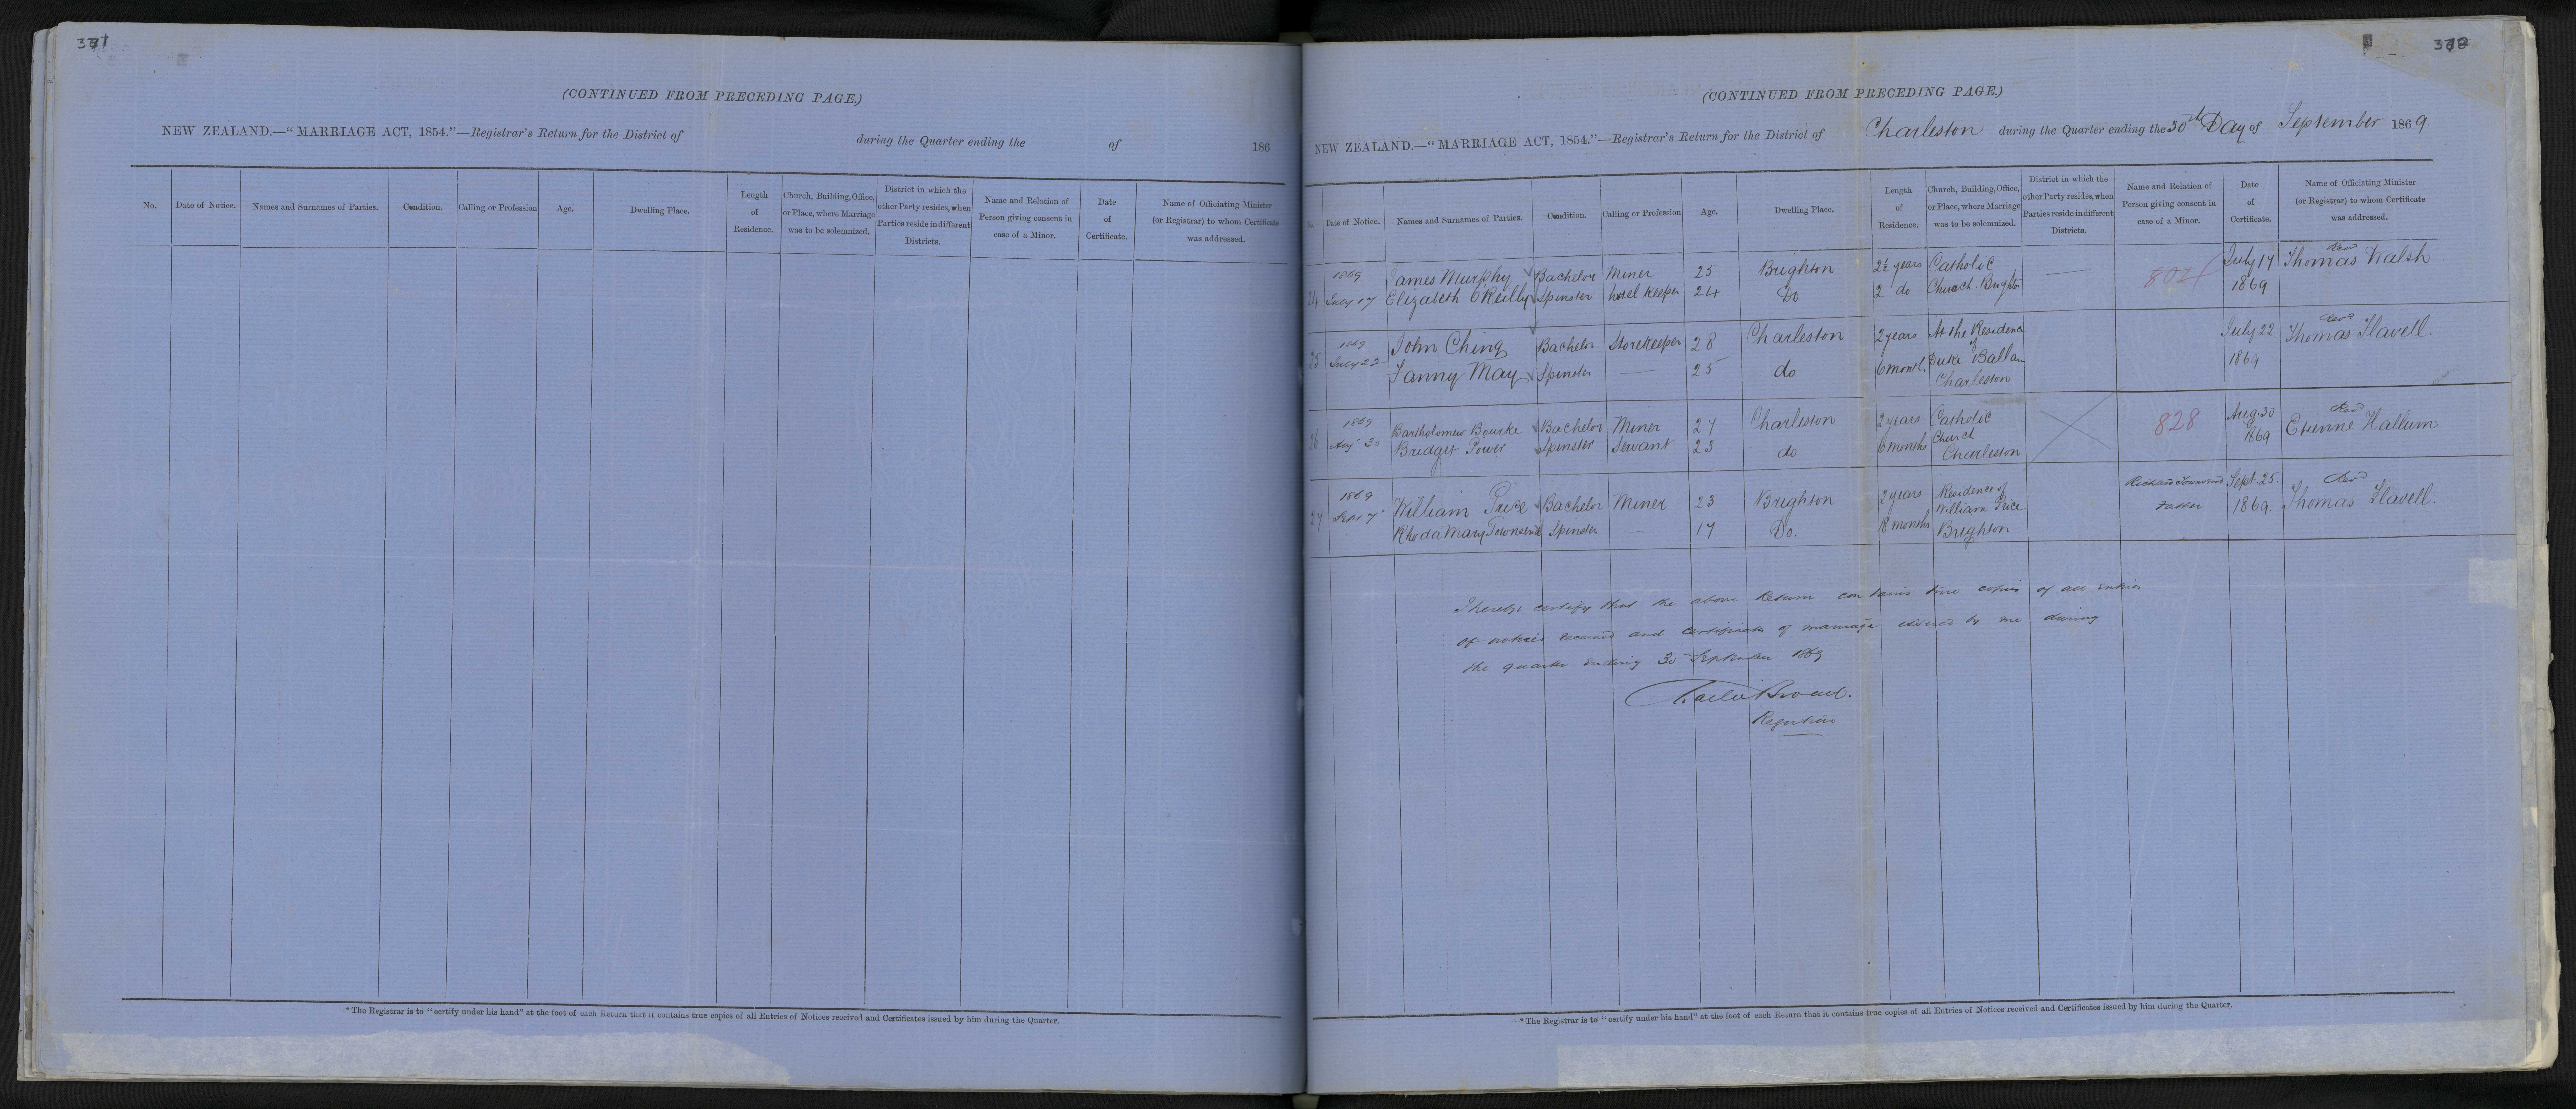 (CONTINUED FROM PRECEDING PAGE.)
NEW ZEALAND.—“MARRIAGE ACT, 1854.”—Registrar's Return for the District of during the Quarter ending the of 186
No. Date of Notice. Names and Surnames of Parties. Condition. Calling or Profession Age. Dwelling Place. Length of Residence. Church, Building, Office, or Place, where Marriage was to be solemnized. District in which the other Party resides, when Parties reside in different Districts. Name and Relation of Person giving consent in case of a Minor. Date of Certificate. Name of Officiating Minister (or Registrar) to whom Certificate was addressed.
*The Registrar is to “certify under his hand” at the foot of each Return that it contains true copies of all Entries of Notices received and Certificates issued by him during the Quarter.
(CONTINUED FROM PRECEDING PAGE.)
NEW ZEALAND.—“MARRIAGE ACT, 1854.”—Registrar's Return for the District of Charleston during the Quarter ending the 30th Day of September 1869.
Date of Notice. Names and Surnames of Parties. Condition. Calling or Profession Age. Dwelling Place. Length of Residence. Church, Building, Office, or Place, where Marriage was to be solemnized. District in which the other Party resides, when Parties reside in different Districts. Name and Relation of Person giving consent in case of a Minor. Date of Certificate. Name of Officiating Minister (or Registrar) to whom Certificate was addressed.
1869 James Murphy Bachelor Miner 25 Brighton 2½ years Catholic July 17 Revd Thomas Walsh
24 July 17 Elizabeth O'Reilly Spinster hotel keeper 24 Do 2 do Church Brighton 1869
1869 John Ching Bachelor Storekeeper 28 Charleston 2 years At the Residence of July 22 Revd Thomas Flavell.
25 July 22 Fanny May Spinster — 25 do 6 months Duke Ballam 1869
Charleston
1869 Bartholomew Bourke Bachelor Miner 27 Charleston 2 years Catholic 828 Aug. 30 Revd Etienne Hallum
26 Augt 30 Bridget Power Spinster Servant 23 do 6 months Church 1869
Charleston
1869 William Price Bachelor Miner 23 Brighton 2 years Residence of William Price Richard Townsend Sept. 25. Revd Thomas Flavell.
27 Sept 7 Rhoda Mary Townsend Spinster — 17 Do. 18 months Brighton Father 1869.
I hereby certify that the above Return contains true copies of all entries
of notices received and certificates of marriage issued by me during
the quarter ending 30 September 1869
Charles Broad.
Registrar
*The Registrar is to “certify under his hand” at the foot of each Return that it contains true copies of all Entries of Notices received and Certificates issued by him during the Quarter.